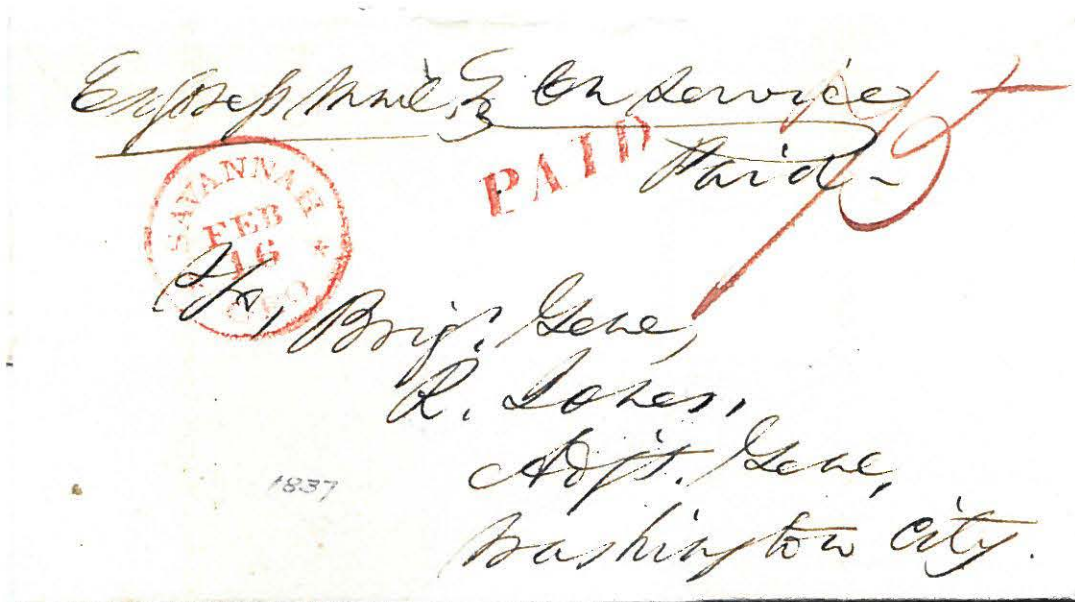 Express Mail. On Service
Paid
PAID
SAVANNAH
FEB
16
GEO.
To,
Brig. Genl,
R. Jones,
Adjt. Genl,
Washington City.
1837